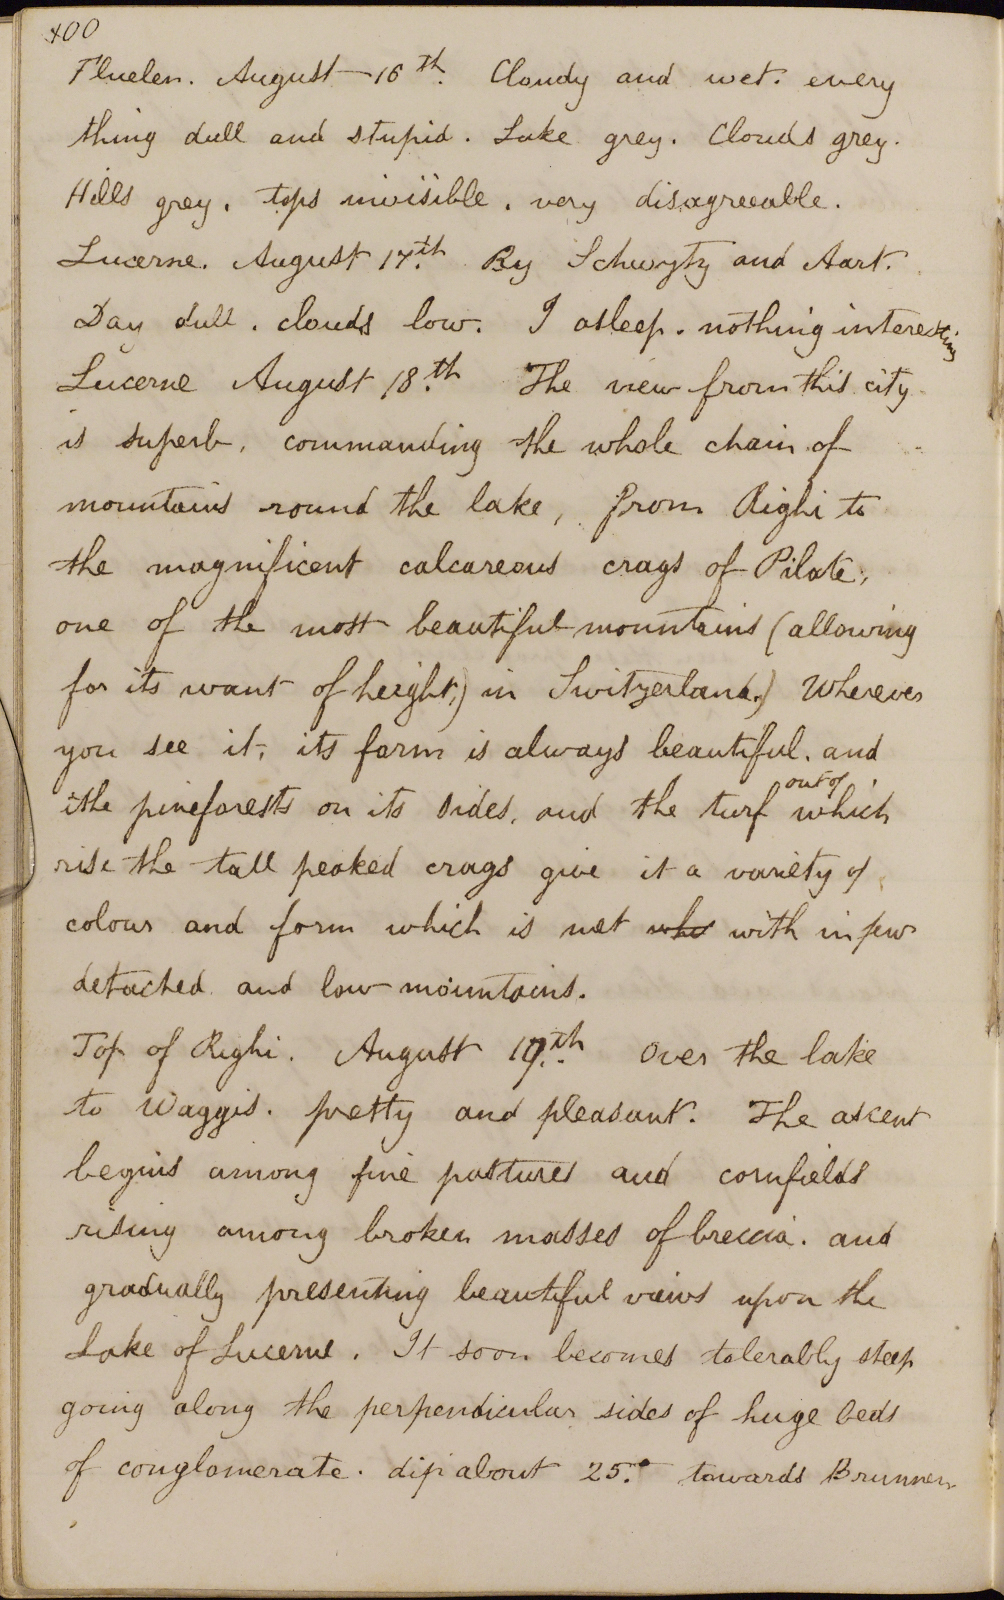 400
Fluelen. August 16th. Cloudy and wet. every
thing dull and stupid. Lake grey. Clouds grey.
Hills grey, tops invisible, very disagreeable.
Lucerne. August 17th. By Schwytz and Aart.
Day dull. clouds low. I asleep. nothing interesting
Lucerne August 18th. The view from this city
is superb, commanding the whole chain of
mountains round the lake, from Righi to
the magnificent calcareous crags of Pilate,
one of the most beautiful mountains (allowing
for its want of height,) in Switzerland.) Wherever
you see it, its form is always beautiful. and
the pineforests on its sides, and the turf out of which
rise the tall peaked crags give it a variety of
colour and form which is met whi with in few
detached and low mountains.
Top of Righi. August 19th. Over the lake
to Waggis. pretty and pleasant. The ascent
begins among fine pastures and cornfields
rising among broken masses of breccia. and
gradually presenting beautiful views upon the
Lake of Lucerne. It soon becomes tolerably steep
going along the perpendicular sides of huge beds
of conglomerate. dip about 25.° towards Brunnen